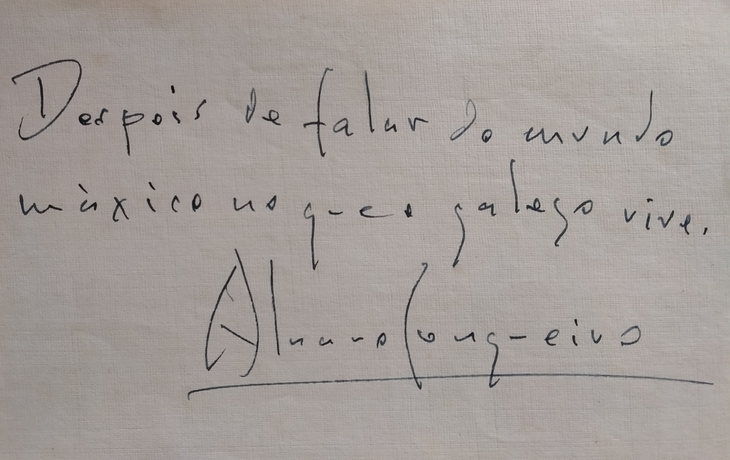 Despois de falar do mundo
máxico no que o galego vive.
Alvaro Cunqueiro